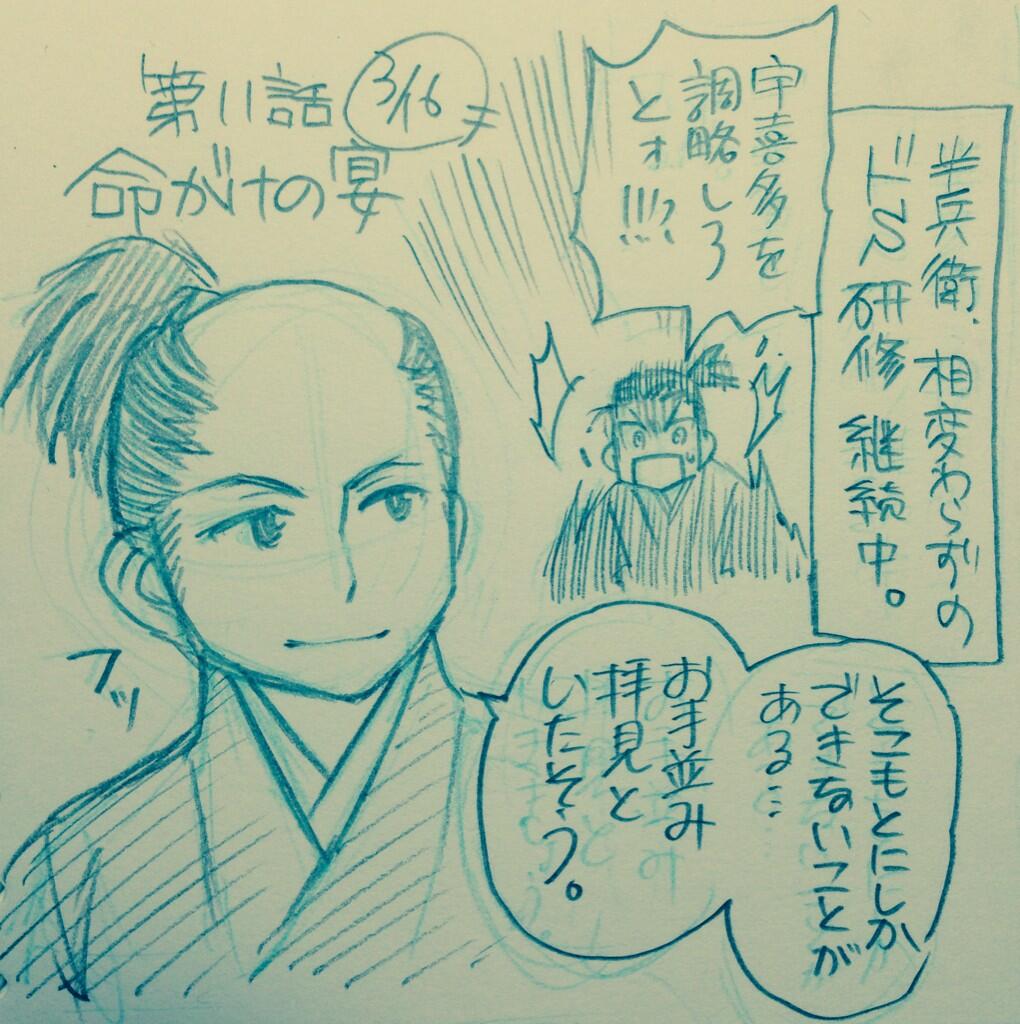 第11話
3/16
命がけの宴
半兵衛、相変わらずの
ドS研修継続中。
宇喜多を
調略しろ
とォ!!!?
そこもとにしか
できないことが
ある…
お手並み
拝見と
いたそう。
フッ